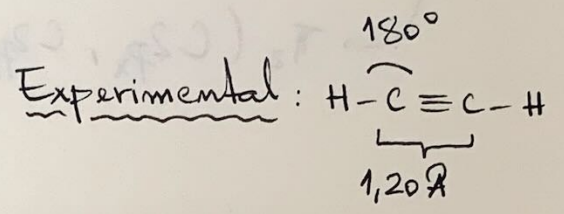 180°
Experimental: H-C≡C-H
1,20 Å